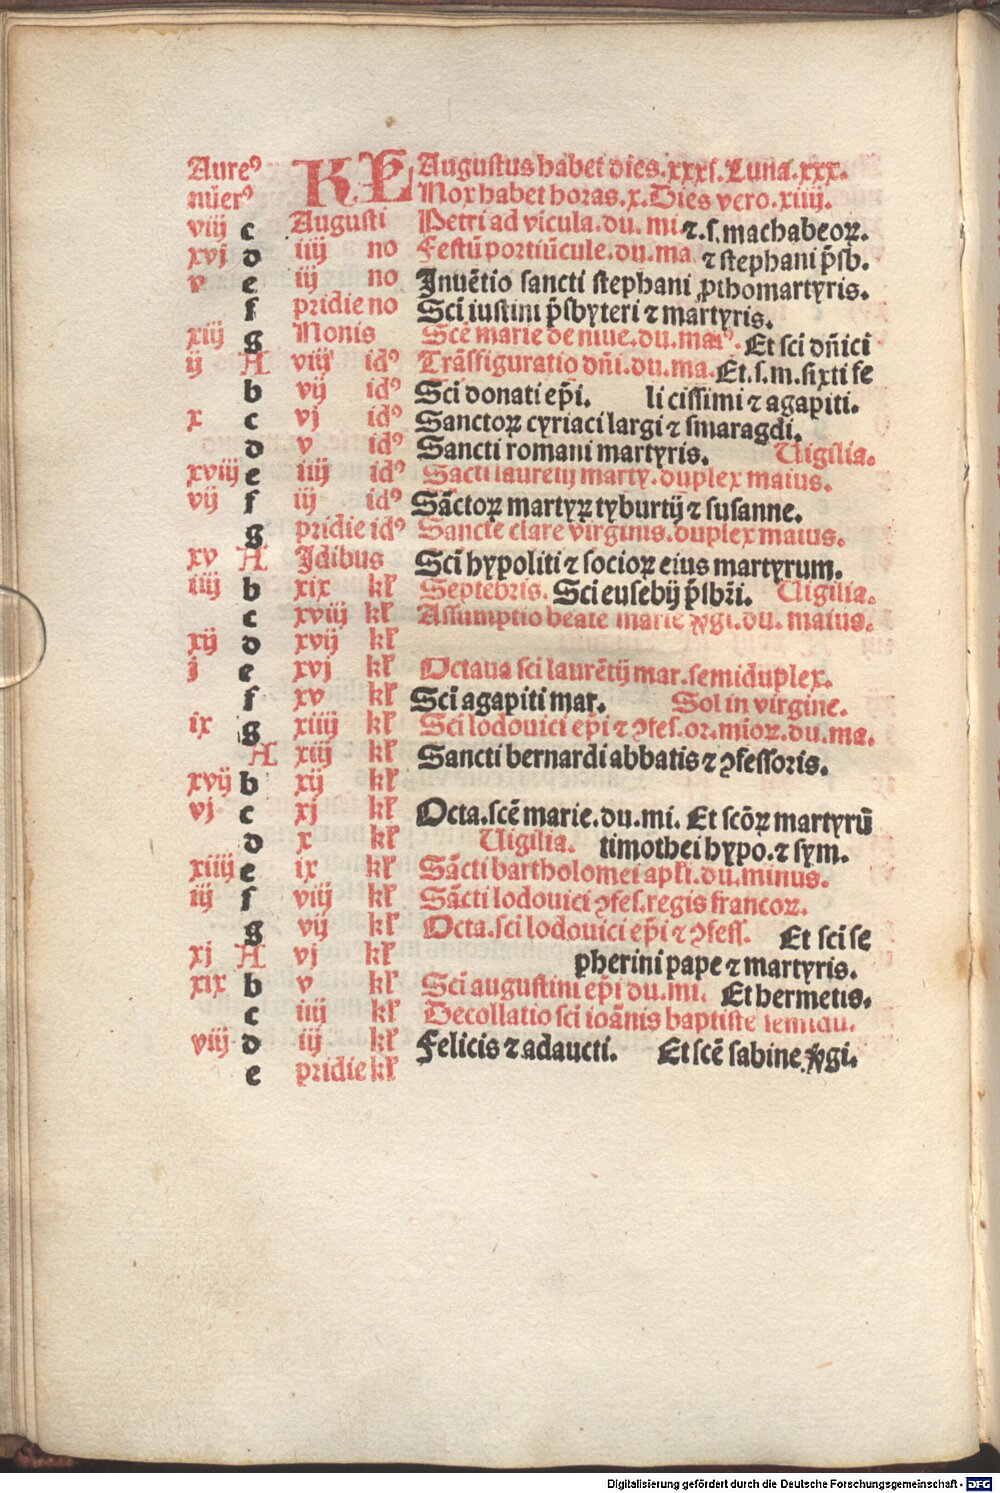 Aureꝰ KL Augustus habet dies.xxxj. Luna.xxx.
nũerꝰ Nox habet horas.x. Dies vero.xiiij.
viij c Augusti Petri ad vicula.du.mi ⁊.s.machabeoꝝ.
xvj d iiij no Festũ portiũcule.du.ma. ⁊ stephani p̃sb.
v e iij no Inuẽtio sancti stephani ꝓthomartyris.
f pridie no Sci iustini p̃sbyteri ⁊ martyris.
xiij g Nonis Scẽ marie de niue.du.maiꝰ. Et sci dñici
ij A viij idꝰ Trãsfiguratio dñi.du.ma. Et.s.m.sixti fe
b vij idꝰ Sci donati ep̃i. licissimi ⁊ agapiti.
x c vj idꝰ Sanctoꝝ cyriaci largi ⁊ smaragdi.
d v idꝰ Sancti romani martyris. Uigilia.
xviij e iiij idꝰ Sãcti laurẽtij marty.duplex maius.
vij f iij idꝰ Sãctoꝝ martyꝝ tyburtij ⁊ susanne.
g pridie idꝰ Sancte clare virginis.duplex maius.
xv A Idibus Sci hypoliti ⁊ socioꝝ eius martyrum.
iiij b xix kl Septẽbris. Sci eusebij p̃sbri. Uigilia.
c xviij kl Assumptio beate marie ỹgi.du. maius.
xij d xvij kl
j e xvj kl Octaua sci laurẽtij mar.semiduplex.
f xv kl Sci agapiti mar. Sol in virgine.
ix g xiiij kl Sci lodouici ep̃i ⁊ ꝯfes.or.mioꝝ.du.ma.
A xiij kl Sancti bernardi abbatis ⁊ ꝯfessoris.
xvij b xij kl
vj c xj kl Octa.scẽ marie.du.mi. Et scõꝝ martyrũ
d x kl Uigilia. timothei hypo.⁊ sym.
xiiij e ix kl Sãcti bartholomei apl̃i.du.minus.
iij f viij kl Sãcti lodouici ꝯfes.regis francoꝝ.
g vij kl Octa.sci lodouici ep̃i ⁊ ꝯfess. Et sci se
xj A vj kl pherini pape ⁊ martyris.
xix b v kl Sci augustini ep̃i du.mi. Et hermetis.
c iiij kl Decollatio sci ioãnis baptiste semidu.
viij d iij kl Felicis ⁊ adaucti. Et scẽ sabine ỹgi.
e pridie kl
Digitalisierung gefördert durch die Deutsche Forschungsgemeinschaft - DFG